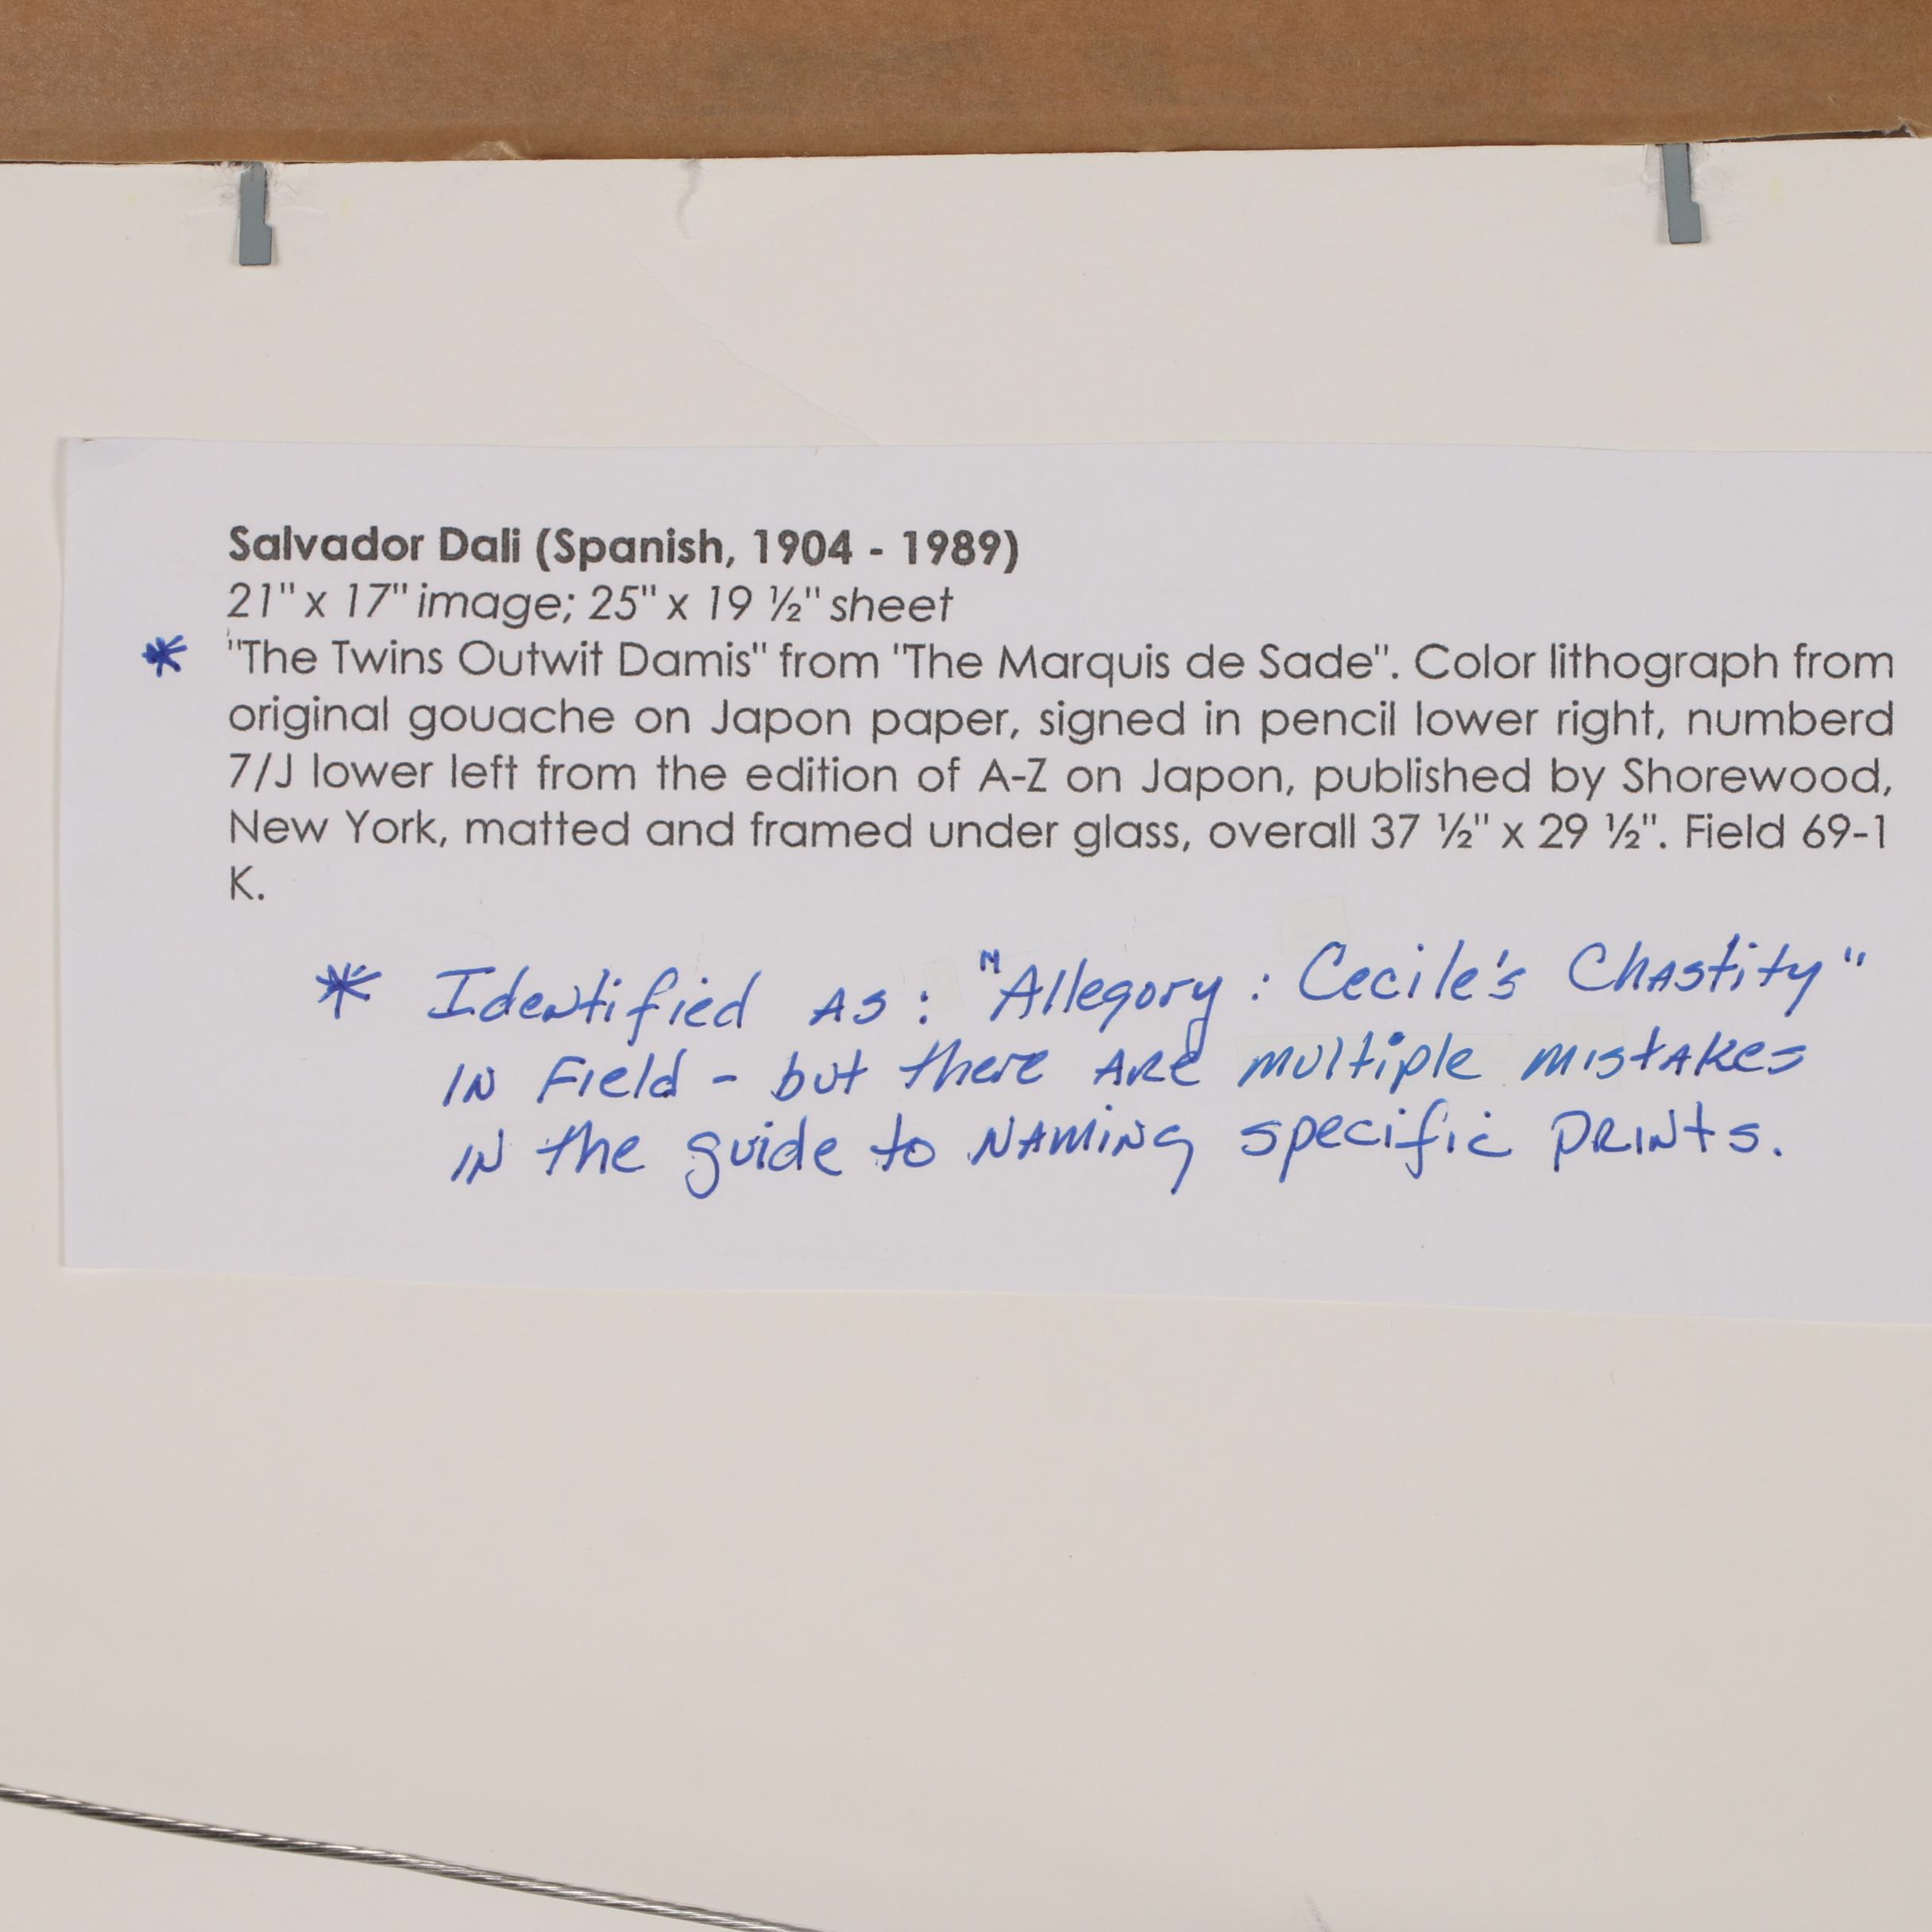 Salvador Dali (Spanish, 1904 - 1989)
21" x 17" image; 25" x 19 ½" sheet
* "The Twins Outwit Damis" from "The Marquis de Sade". Color lithograph from
original gouache on Japon paper, signed in pencil lower right, numberd
7/J lower left from the edition of A-Z on Japon, published by Shorewood,
New York, matted and framed under glass, overall 37 ½" x 29 ½". Field 69-1
K.
* Identified As: "Allegory: Cecile's Chastity"
IN Field - but there ARE multiple mistakes
IN the guide to NAMING specific PRINTS.